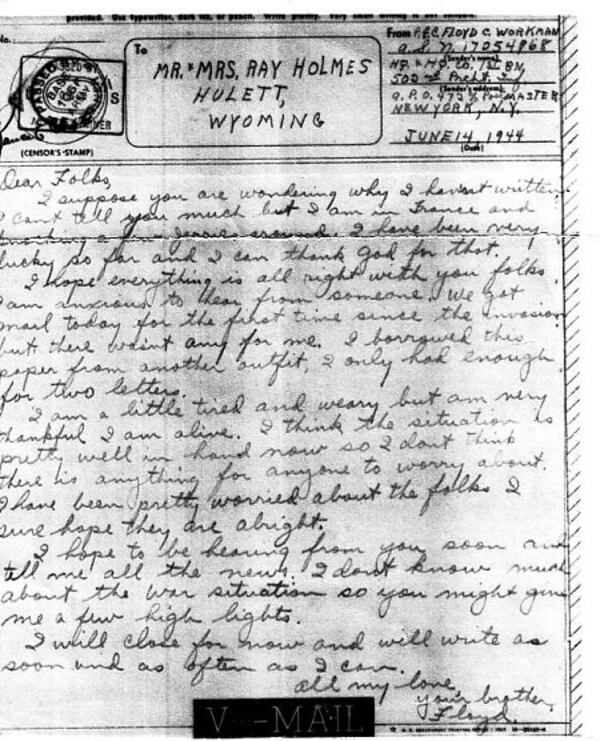 provided. Use typewriter, dark ink, or pencil. Write plainly. Very small writing is not suitable.
No.
PASSED BY
BASE
ARMY
EXAMINER
S
(CENSOR'S STAMP)
To
MR. & MRS. RAY HOLMES
HULETT,
WYOMING
From P.F.C. FLOYD C. WORKMAN
(Sender's name)
A.S.N. 17054868
HQ. & HQ. CO. 1st BN,
502nd Prcht. Inf
(Sender's address)
A.P.O. 472 % POSTMASTER
NEW YORK, N.Y.
JUNE 14, 1944
(Date)
Dear Folks,
I suppose you are wondering why I havent written.
I cant tell you much but I am in France and
a few Jerries around. I have been very
lucky so far and I can thank God for that.
I hope everything is all right with you folks.
I am anxious to hear from someone. We got
mail today for the first time since the invasion
but there wasnt any for me. I borrowed this
paper from another outfit, I only had enough
for two letters.
I am a little tired and weary but am very
thankful I am alive. I think the situation is
pretty well in hand now so I dont think
there is anything for anyone to worry about.
I have been pretty worried about the folks I
sure hope they are alright.
I hope to be hearing from you soon and
tell me all the news. I dont know much
about the war situation so you might give
me a few high lights.
I will close for now and will write as
soon and as often as I can.
all my love,
your brother,
Floyd.
V---MAIL